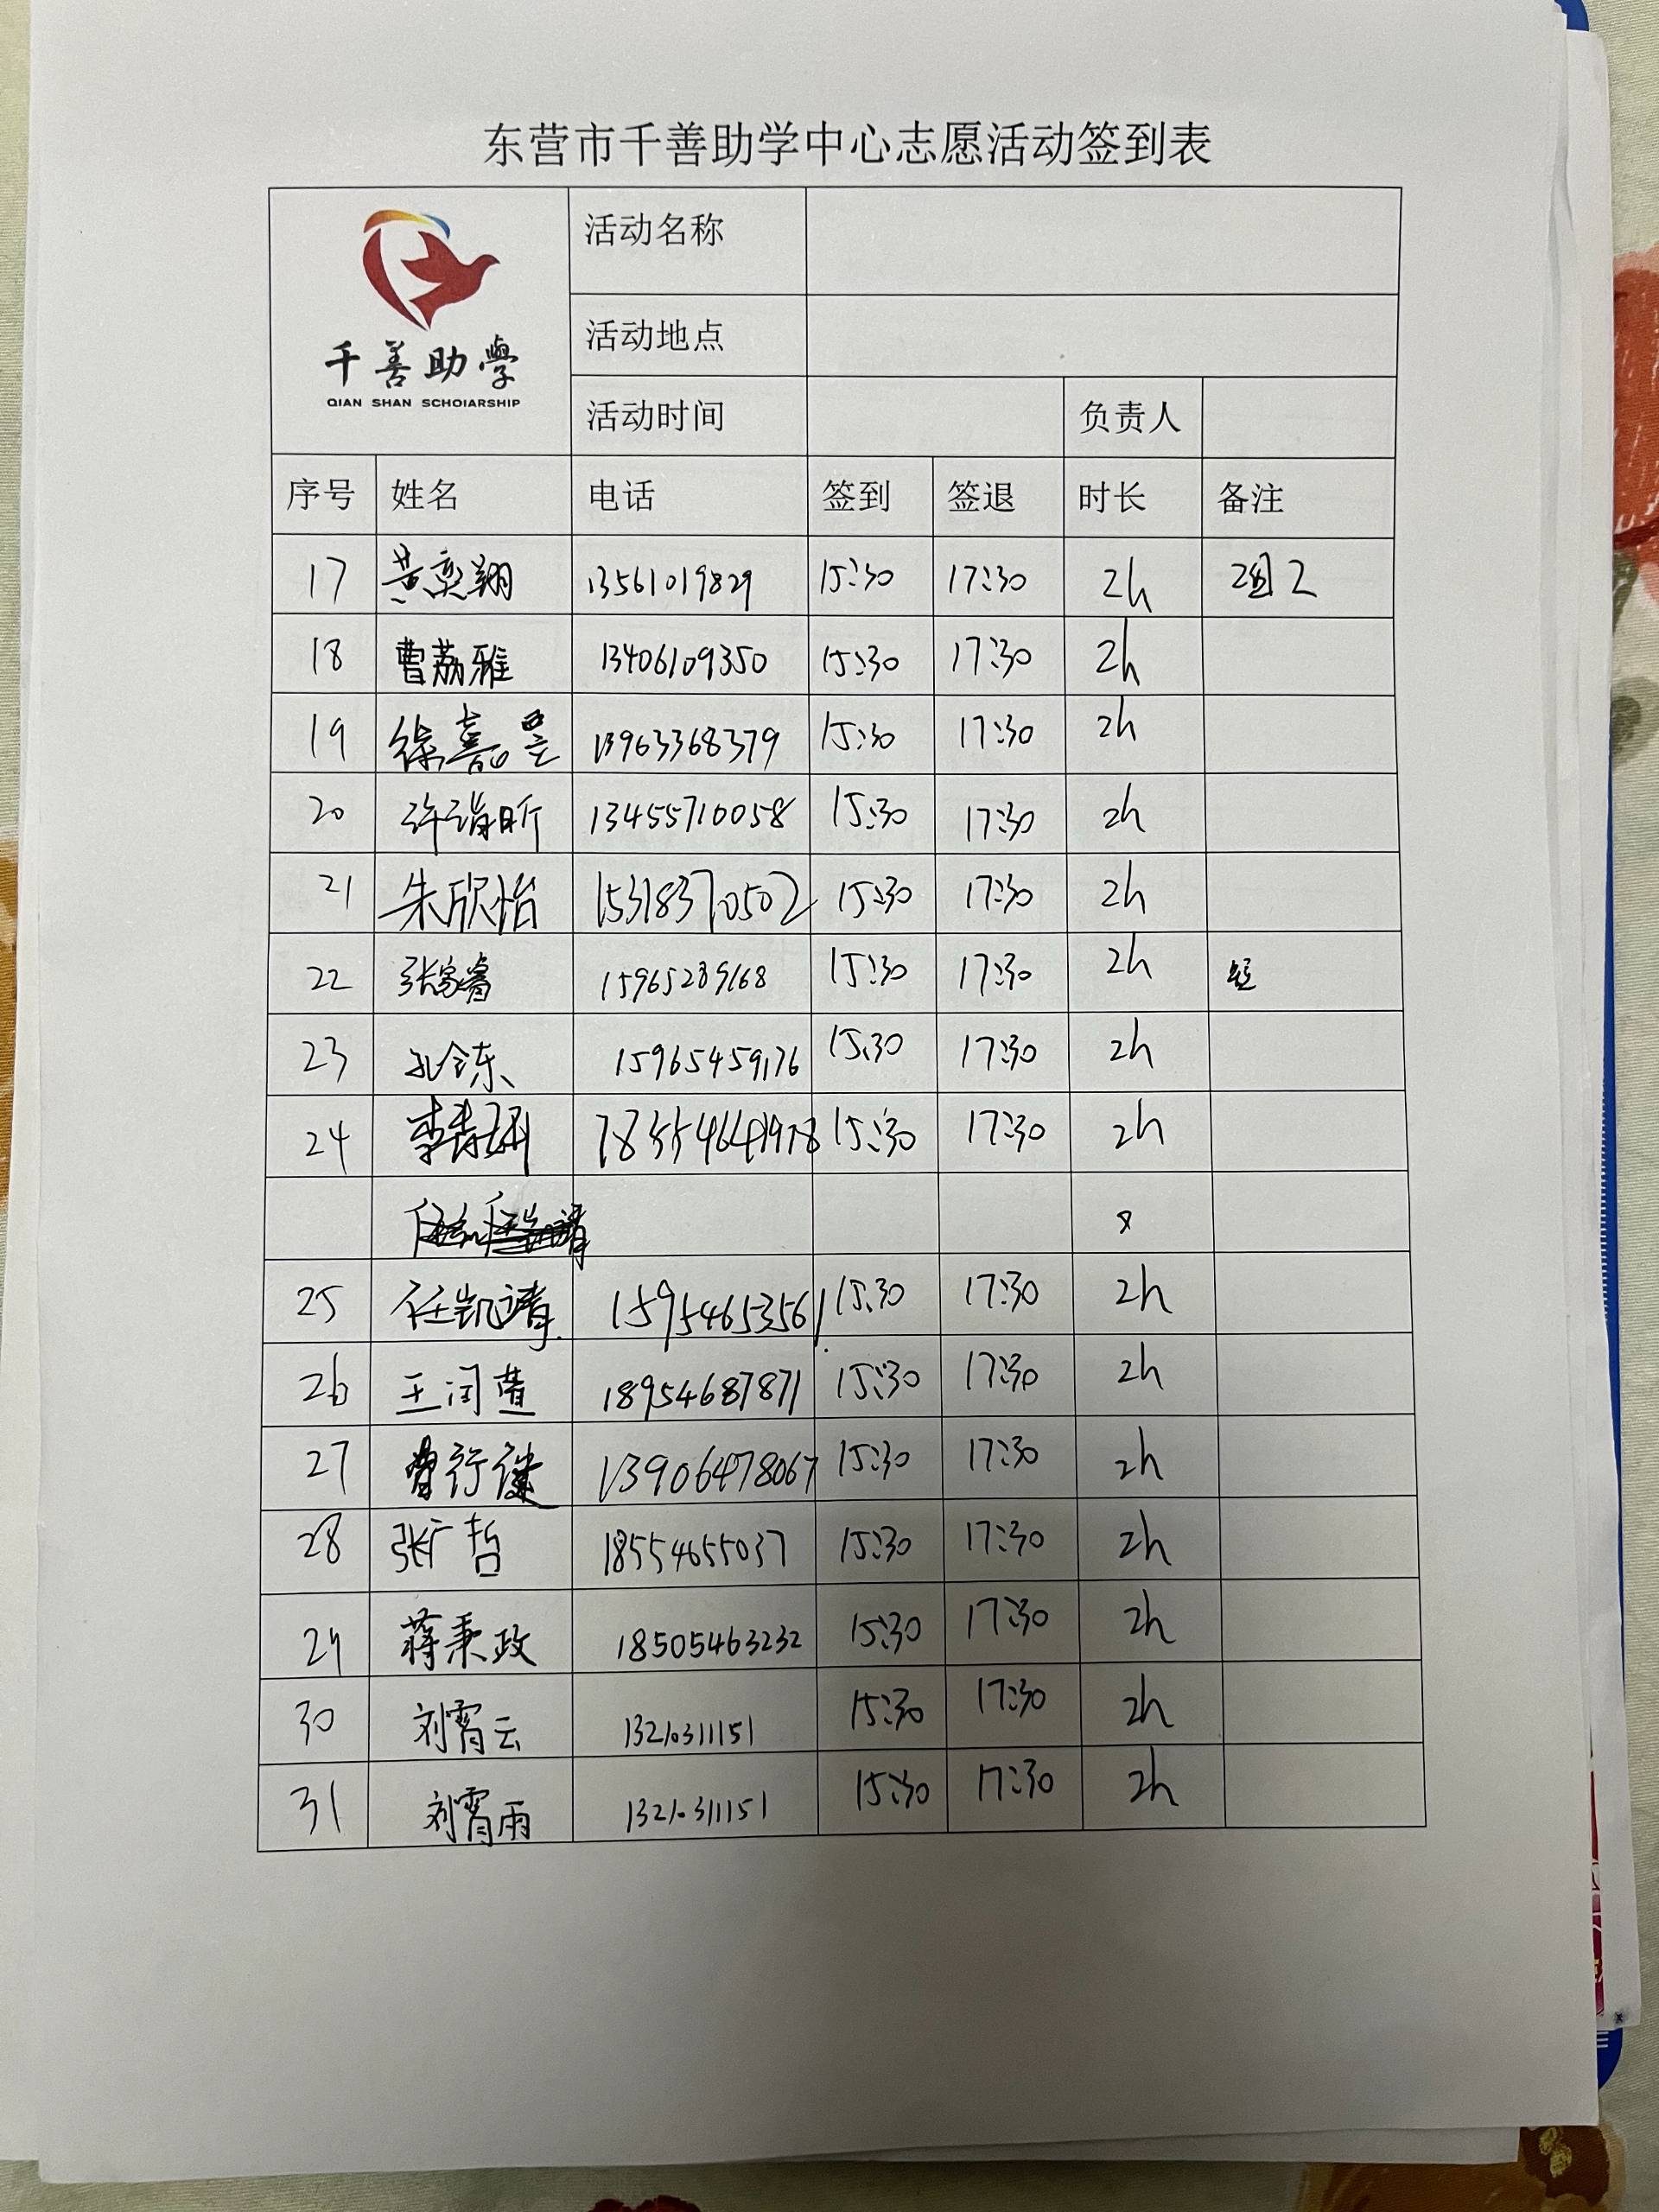 东营市千善助学中心志愿活动签到表
千善助學
QIAN SHAN SCHOIARSHIP
活动名称
活动地点
活动时间 负责人
序号 姓名 电话 签到 签退 时长 备注
17 黄奕翔 13561019829 15:30 17:30 2h 组2
18 曹荔雅 13406109350 15:30 17:30 2h
19 徐嘉昱 13963368379 15:30 17:30 2h
20 许诣昕 13455710058 15:30 17:30 2h
21 朱欣怡 15318370502 15:30 17:30 2h
22 张家睿 15965289168 15:30 17:30 2h
23 孔令东 15965459176 15:30 17:30 2h
24 15:30 17:30 2h
25 任凯靖 15954653561 15:30 17:30 2h
26 王闰萱 18954687871 15:30 17:30 2h
27 曹行健 13906478067 15:30 17:30 2h
28 张广哲 18554655037 15:30 17:30 2h
29 蒋秉政 18505463232 15:30 17:30 2h
30 刘霄云 13210311151 15:30 17:30 2h
31 刘霄雨 13210311151 15:30 17:30 2h